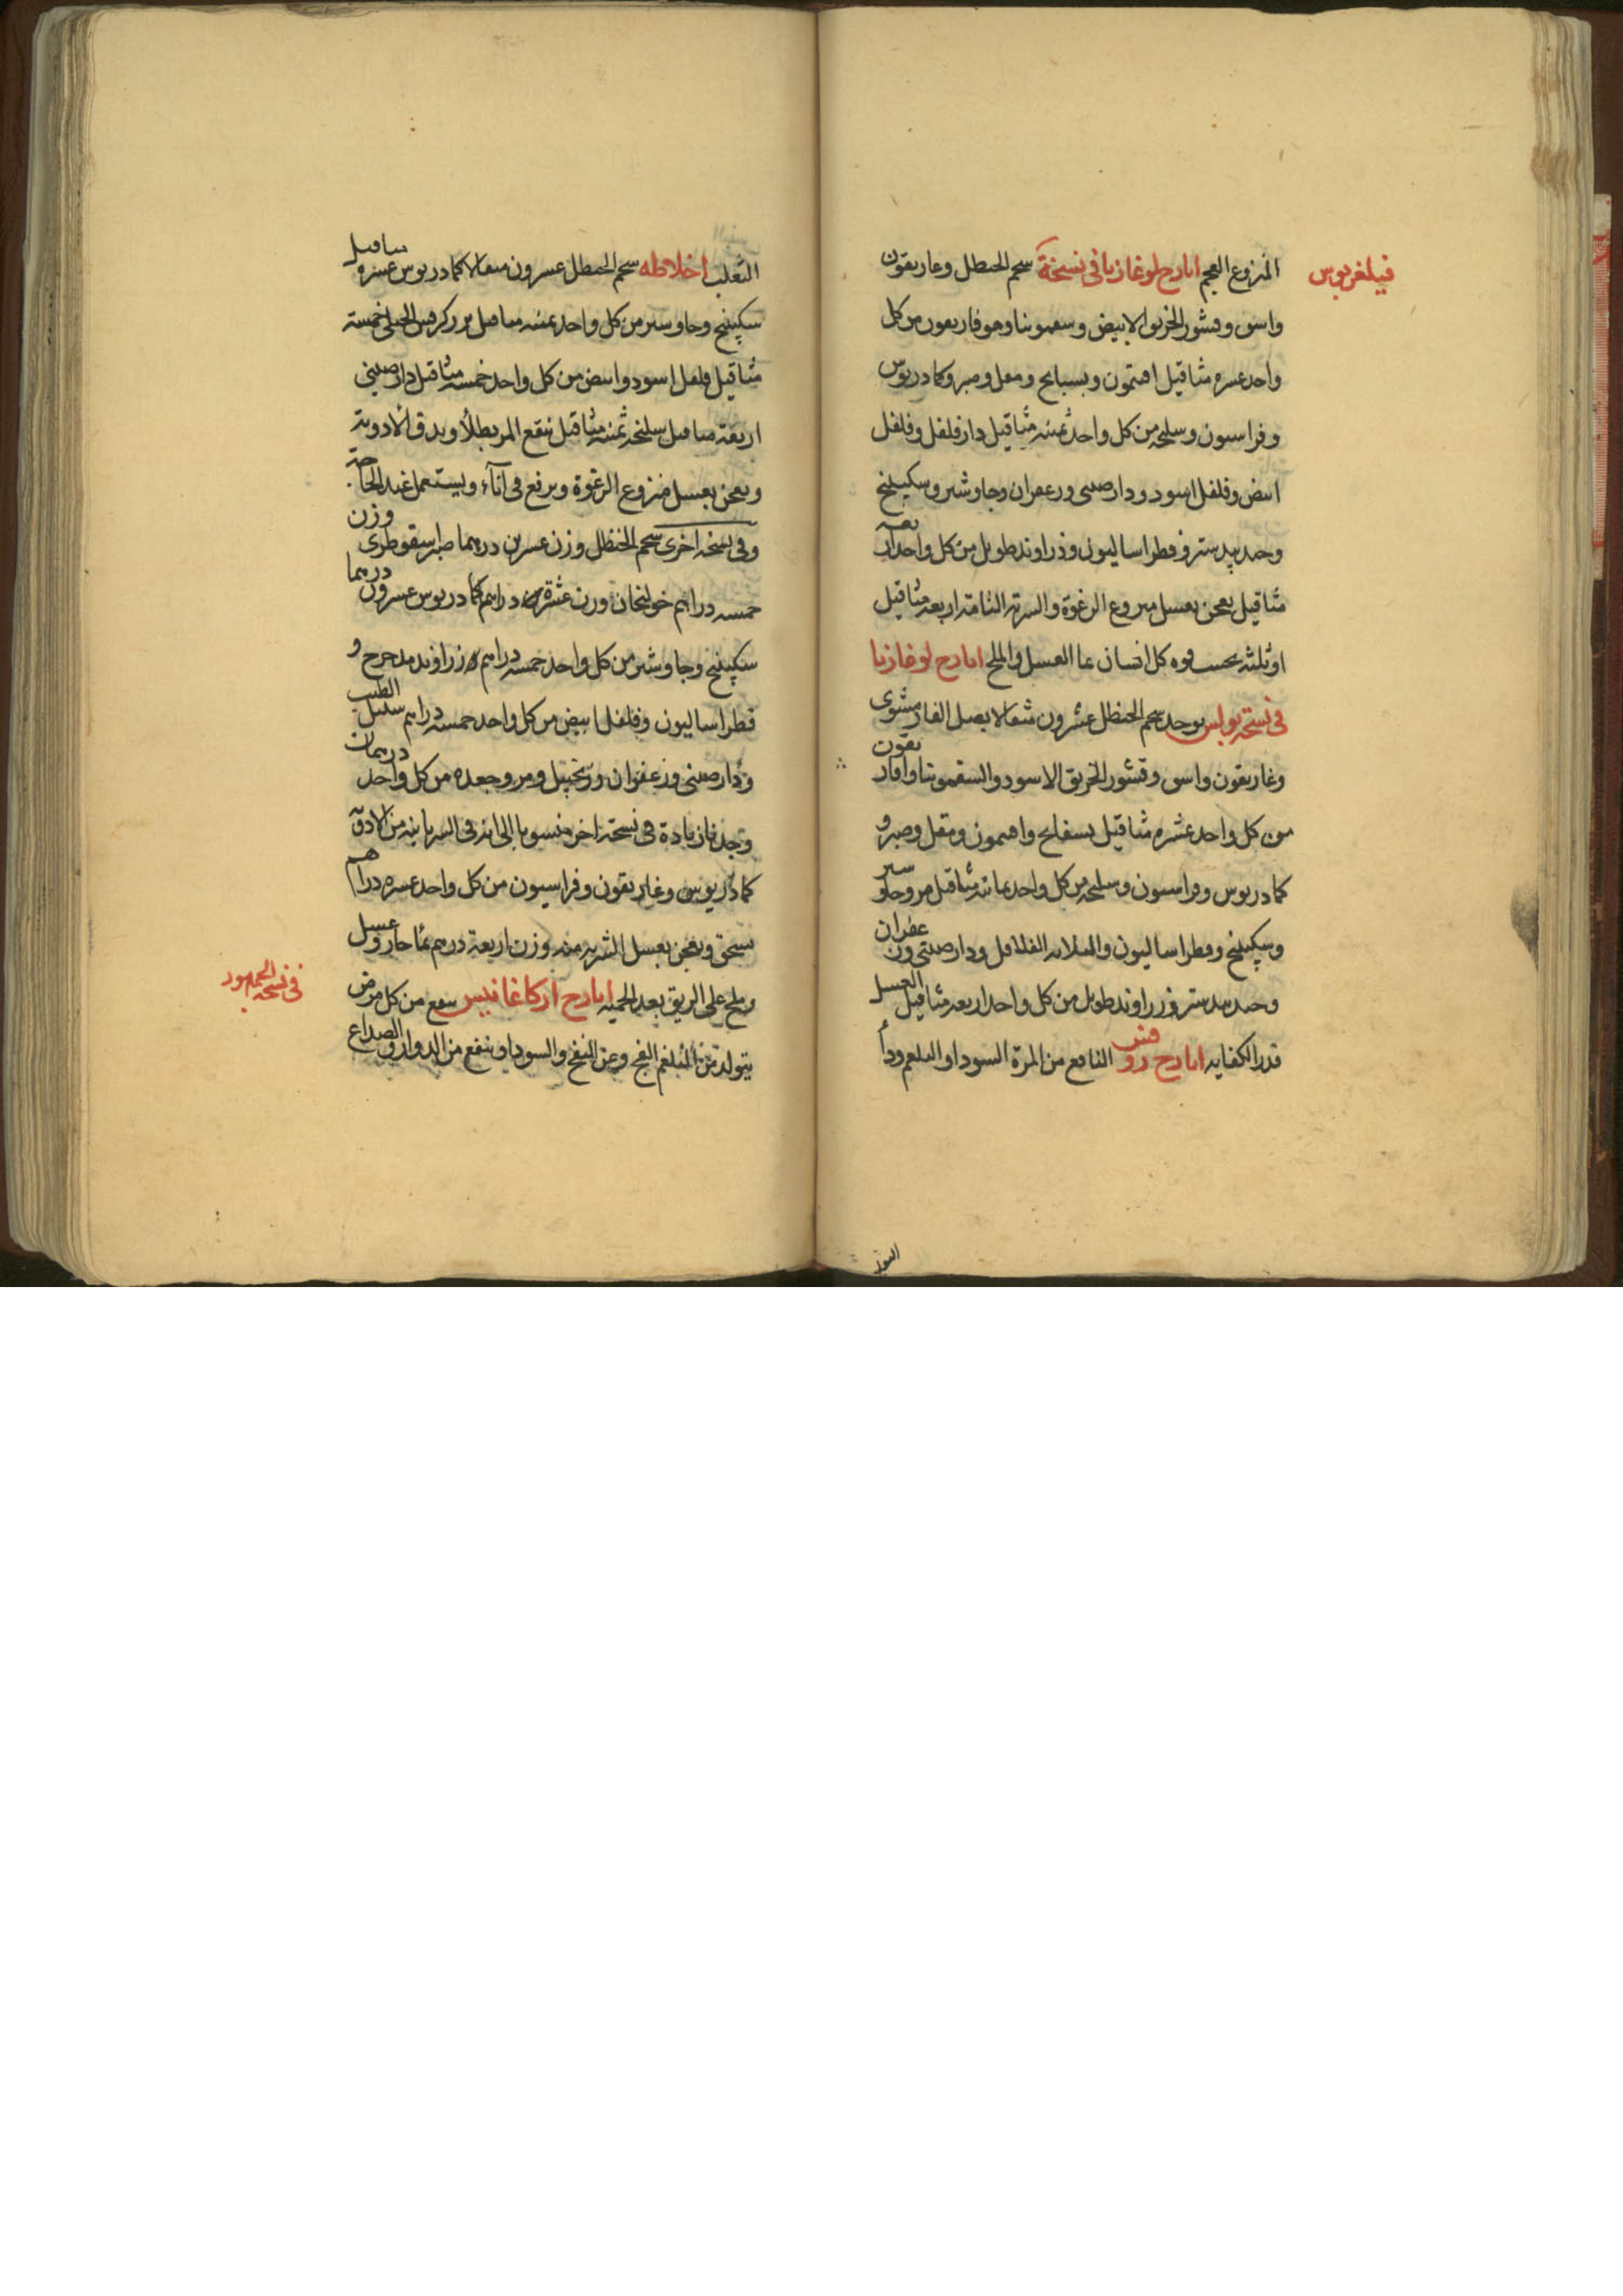 فيلغريوس
المنزوع العجم ايارج لوغاذيا فى نسخة شحم الحنظل وغاريقون
واسق وقشور الخربق الابيض وسقمونيا وهوفاريقون من كل
واحد عسره مثاقيل افتيمون وبسبايج ومقل وصبر وكمادريوس
وفراسيون وسليخه من كل واحد ثمنيه مثاقيل دارفلفل وفلفل
ابيض وفلفل اسود ودارصينى وزعفران وجاوشير وسكبينج
وجندبيدستر وفطراساليون وزراوند طويل من كل واحد اربعه
مثاقيل يعجن بعسل منزوع الرغوة والشربه التامة اربعه مثاقيل
او ثلثه بحسب قوه كل انسان بما العسل والملح ايارج لوغاذيا
فى نسخة بولس يوخذ شحم الحنظل عشرون مثقالا بصل الفار مشوى
وغاريقون واسق وقشور الخربق الاسود والسقمونيا واوفاريقون
من كل واحد عشره مثاقيل بسفايج وافتيمون ومقل وصبر و
كمادريوس وفراسيون وسليخه من كل واحد ثمانيه مثاقيل مر وجاوشير
وسكبينج وفطراساليون والثلاثه الفلافل ودارصينى وزعفران
وجندبيدستر وزراوند طويل من كل واحد اربعه مثاقيل العسل
قدر الكفايه ايارج روفس النافع من المرة السودا والبلغم ودا
الثعلب اخلاطه شحم الحنظل عسرون مثقالا كمادريوس عسره مثاقيل
سكبينج وجاوشير من كل واحد ثمنيه مثاقيل بزر كرفس الجبلى خمسة
مثاقيل فلفل اسود وابيض من كل واحد خمسه مثاقيل دارصينى
اربعة مثاقيل سليخه ثمنيه مثاقيل ينقع المر بطلا ويدق الادوية
ويعجن بعسل منزوع الرغوة ويرفع فى اناء ويستعمل عند الحاجة
وفى نسخه اخرى شحم الحنظل وزن عسرين درهما صبر اسقوطرى وزن
خمسه دراهم خولنجان وزن عشرة دراهم كمادريوس عسرون درهما
سكبينج وجاوشير من كل واحد خمسه دراهم زراوند مدحرج و
فطراساليون وفلفل ابيض من كل واحد خمسه دراهم سنبل الطيب
ودارصينى وزعفران وزنجبيل ومر وجعده من كل واحد درهمان
وجدنا زيادة فى نسخة اخر منسوبا الى انه فى السريانيه من الادوية
كمادريوس وغاريقون وفراسيون من كل واحد عسره دراهم
تسحق وتعجن بعسل الشربه منه وزن اربعة درهم بما حار وعسل
وملح على الريق بعد الحميه ايارج اركاغانيس ينفع من كل مرض
فى نسخة الجمهور
يتولد من البلغم الفج وعن النفخ والسودا وينفع من الدوار والصداع